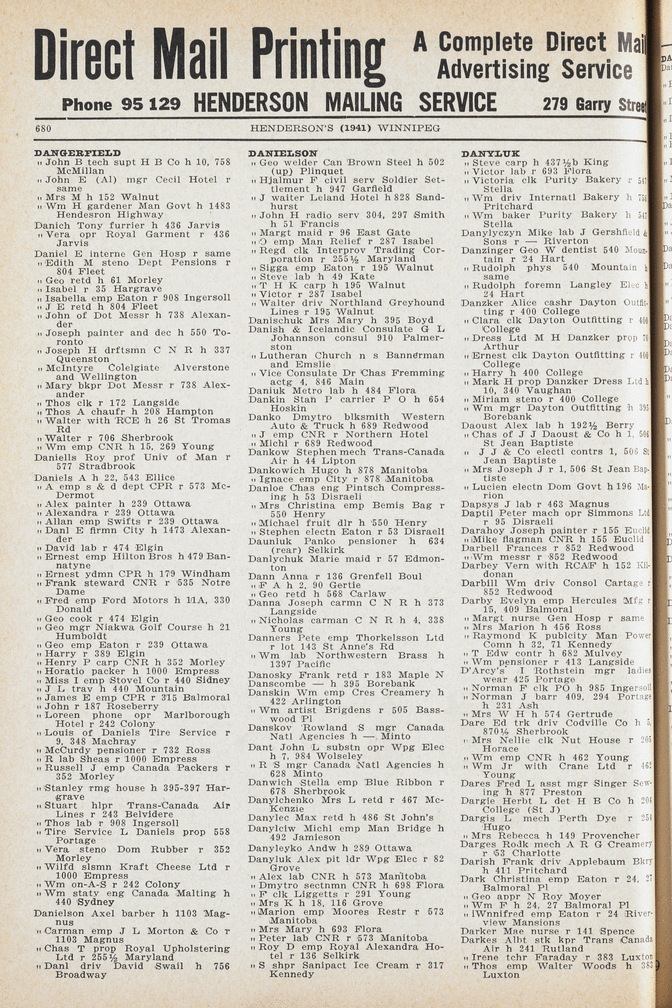 Direct Mail Printing
A Complete Direct Mail
Advertising Service
Phone 95 129 HENDERSON MAILING SERVICE 279 Garry Street
680 HENDERSON'S (1941) WINNIPEG
DANGERFIELD
" John B tech supt H B Co h 10, 758
McMillan
" John E (Al) mgr Cecil Hotel r
same
" Mrs M h 152 Walnut
" Wm H gardener Man Govt h 1483
Hendesron Highway
Danich Tony furrier h 436 Jarvis
" Vera opr Royal Garment r 436
Jarvis
Daniel E interne Gen Hosp r same
" Edith M steno Dept Pensions r
804 Fleet
" Geo retd h 61 Morley
" Isabel r 35 Hargrave
" Isabella emp Eaton r 908 Ingersoll
" J E retd h 804 Fleet
" John of Dot Messr h 738 Alexan-
der
" Joseph painter and dec h 550 To-
ronto
" Joseph H drftsmn C N R h 337
Queenston
" McIntyre Colelgiate Alverstone
and Wellington
" Mary bkpr Dot Messr r 738 Alex-
ander
" Thos clk r 172 Langside
" Thos A chaufr h 208 Hampton
" Walter with RCE h 26 St Tromas
Rd
" Walter r 706 Sherbrook
" Wm emp CNR h 15, 269 Young
Daniells Roy prof Univ of Man r
577 Stradbrook
Daniels A h 22, 543 Ellice
" A emp s & d dept CPR r 573 Mc-
Dermot
" Alex painter h 239 Ottawa
" Alexandra r 239 Ottawa
" Allan emp Swifts r 239 Ottawa
" Danl E firmn City h 1473 Alexan-
der
" David lab r 474 Elgin
" Ernest emp Hilton Bros h 479 Ban-
natyne
" Ernest ydmn CPR h 179 Windham
" Frank steward CNR r 535 Notre
Dame
" Fred emp Ford Motors h 11A, 330
Donald
" Geo cook r 474 Elgin
" Geo mgr Niakwa Golf Course h 21
Humboldt
" Geo emp Eaton r 239 Ottawa
" Harry r 389 Elgin
" Henry P carp CNR h 352 Morley
" Horatio packer h 1000 Empress
" Miss I emp Stovel Co r 440 Sidney
" J L trav h 440 Mountain
" James E emp CPR r 315 Balmoral
" John r 187 Roseberry
" Loreen phone opr Marlborough
Hotel r 242 Colony
" Louis of Daniels Tire Service r
9, 348 Machray
" McCurdy pensioner r 732 Ross
" R lab Shea r 1000 Empress
" Russell J emp Canada Packers r
352 Morley
" Stanley rmg house h 395-397 Har-
grave
" Stuart hlpr Trans-Canada Air
Lines r 243 Belvidere
" Thos lab r 908 Ingersoll
" Tire Service L Daniels prop 558
Portage
" Vera steno Dom Rubber r 352
Morley
" Wilfd slsmn Kraft Cheese Ltd r
1000 Empress
" Wm on-A-S r 242 Colony
" Wm staty eng Canada Malting h
440 Sydney
Danielson Axel barber h 1103 Mag-
nus
" Carman emp J L Morton & Co r
1103 Magnus
" Chas T prop Royal Upholstering
Ltd r 255½ Maryland
" Danl driv David Swail h 756
Broadway
DANIELSON
" Geo welder Can Brown Steel h 502
(up) Plinquet
" Hjalmur F civil serv Soldier Set-
tlement h 947 Garfield
" J waiter Leland Hotel h 828 Sand-
hurst
" John H radio serv 304, 297 Smith
h 51 Francis
" Margt maid r 96 East Gate
" O emp Man Relief r 287 Isabel
" Regd clk Interprov Trading Cor-
poration r 255½ Maryland
" Sigga emp Eaton r 195 Walnut
" Steve lab h 49 Kate
" T H K carp h 195 Walnut
" Victor r 287 Isabel
" Walter driv Northland Greyhound
Lines r 195 Walnut
Danischuk Mrs Mary h 395 Boyd
Danish & Icelandic Consulate G L
Johannson consul 910 Palmer-
ston
" Lutheran Church n s Bannerman
and Emslie
" Vice Consulate Dr Chas Fremming
actg 4, 846 Main
Daniuk Metro lab h 484 Flora
Dankin Stan P carrier P O h 654
Hoskin
Danko Dmytro blksmith Western
Auto & Truck h 689 Redwood
" J emp CNR r Northern Hotel
" Michl r 689 Redwood
Dankow Stephen mech Trans-Canada
Air h 44 Lipton
Dankowich Hugo h 878 Manitoba
" Ignace emp City r 878 Manitoba
Danloe Chas eng Pintsch Compress-
ing h 53 Disraeli
" Mrs Christina emp Bemis Bag r
550 Henry
" Michael fruit dlr h 550 Henry
" Stephen electn Eaton r 53 Disraeli
Dauniluk Panko pensioner h 634
(rear) Selkirk
Danlychuk Marie maid r 57 Edmon-
ton
Dann Anna r 136 Grenfell Boul
" F A h 2, 90 Gertie
" Geo retd h 568 Carlaw
Danna Joseph carmn C N R h 373
Langside
" Nicholas carman C N R h 4, 338
Young
Danners Pete emp Thorkelsson Ltd
r lot 143 St Anne's Rd
" Wm lab Northwestern Brass h
1397 Pacific
Danosky Frank retd r 183 Maple N
Danscombe — h 395 Borebank
Danskin Wm emp Cres Creamery h
422 Arlington
" Wm artist Brigdens r 505 Bass-
wood Pl
Danskov Rowland S mgr Canada
Natl Agencies h — Minto
Dant John L substn opr Wpg Elec
h 7, 984 Wolseley
" R S mgr Canada Natl Agencies h
628 Minto
Danwich Stella emp Blue Ribbon r
678 Sherbrook
Danylchenko Mrs L retd r 467 Mc-
Kenzie
Danylec Max retd h 486 St John's
Danylciw Michl emp Man Bridge h
492 Jamieson
Danyleyko Andw h 289 Ottawa
Danyluk Alex pit ldr Wpg Elec r 82
Grove
" Alex lab CNR h 573 Manitoba
" Dmytro sectnmn CNR h 698 Flora
" F clk Liggetts r 291 Young
" Mrs K h 18, 116 Grove
" Marion emp Moores Restr r 573
Manitoba
" Mrs Mary h 693 Flora
" Peter lab CNR r 573 Manitoba
" Roy D emp Royal Alexandra Ho-
tel r 136 Selkirk
" S shpr Sanlpact Ice Cream r 317
Kennedy
DANYLUK
" Steve carp h 437½b King
" Victor lab r 693 Flora
" Victoria clk Purity Bakery r
Stella
" Wm driv Internatl Bakery h
Pritchard
" Wm baker Purity Bakery h
Stella
Danylyczyn Mike lab J Gershfield &
Sons r — Riverton
Danzinger Geo W dentist 540 Moun-
tain r 24 Hart
" Rudolph phys 540 Mountain h
same
" Rudolph foremn Langley Elec h
24 Hart
Danzker Alice cashr Dayton Outfit-
ting r 400 College
" Clara clk Dayton Outfitting r 400
College
" Dress Ltd M H Danzker prop
Arthur
" Ernest clk Dayton Outfitting r 400
College
" Harry h 400 College
" Mark H prop Danzker Dress Ltd h
10, 340 Vaughan
" Miriam steno r 400 College
" Wm mgr Dayton Outfitting h 395
Borebank
Daoust Alex lab h 192½ Berry
" Chas of J J Daoust & Co h 1, 506
St Jean Baptiste
" J J & Co electl contrs 1, 506 St
Jean Baptiste
" Mrs Joseph J r 1, 506 St Jean Bap-
tiste
" Lucien electn Dom Govt h 196 Ma-
rion
Dapsys J lab r 463 Magnus
Daptil Peter mach opr Simmons Ltd
r 95 Disraeli
Darahoy Joseph painter r 155 Euclid
" Mike flagman CNR h 155 Euclid
Darbell Frances r 852 Redwood
" Wm messr r 852 Redwood
Darbey Vern with RCAF h 152 Kil-
donan
Darbill Wm driv Consol Cartage r
852 Redwood
Darby Evelyn emp Hercules Mfg r
15, 409 Balmoral
" Margt nurse Gen Hosp r same
" Mrs Marion h 456 Ross
" Raymond K publcity Man Power
Comn h 32, 71 Kennedy
" T Edw contr h 682 Mulvey
" Wm pensioner r 413 Langside
D'Arcy's I Rothstein mgr ladies
wear 425 Portage
" Norman F clk PO h 985 Ingersoll
" Norman J barr 409, 294 Portage
h 231 Ash
" Mrs W H h 574 Gertrude
Dare Ed trk driv Codville Co h 5,
870½ Sherbrook
" Mrs Nellie clk Nut House r
Horace
" Wm emp CNR h 462 Young
" Wm Jr with Crane Ltd r 462
Young
Dares Fred L asst mgr Singer Sew-
ing h 877 Preston
Dargle Herbt L det H B Co h
College (St J)
Dargis L mech Perth Dye r
Hugo
" Mrs Rebecca h 149 Provencher
Darges Rodk mech A R G Creamery
r 53 Charlotte
Darish Frank driv Applebaum Bkry
h 411 Pritchard
Dark Christina emp Eaton r 24, 27
Balmoral Pl
" Geo appr N Roy Moyer
" Wm F h 24, 27 Balmoral Pl
" iWnnifred emp Eaton r 24 River-
view Mansions
Darker Mae nurse r 141 Spence
Darkes Albt stk kpr Trans Canada
Air h 241 Rutland
" Irene tchr Faraday r 383 Luxton
" Thos emp Walter Woods h 383
Luxton